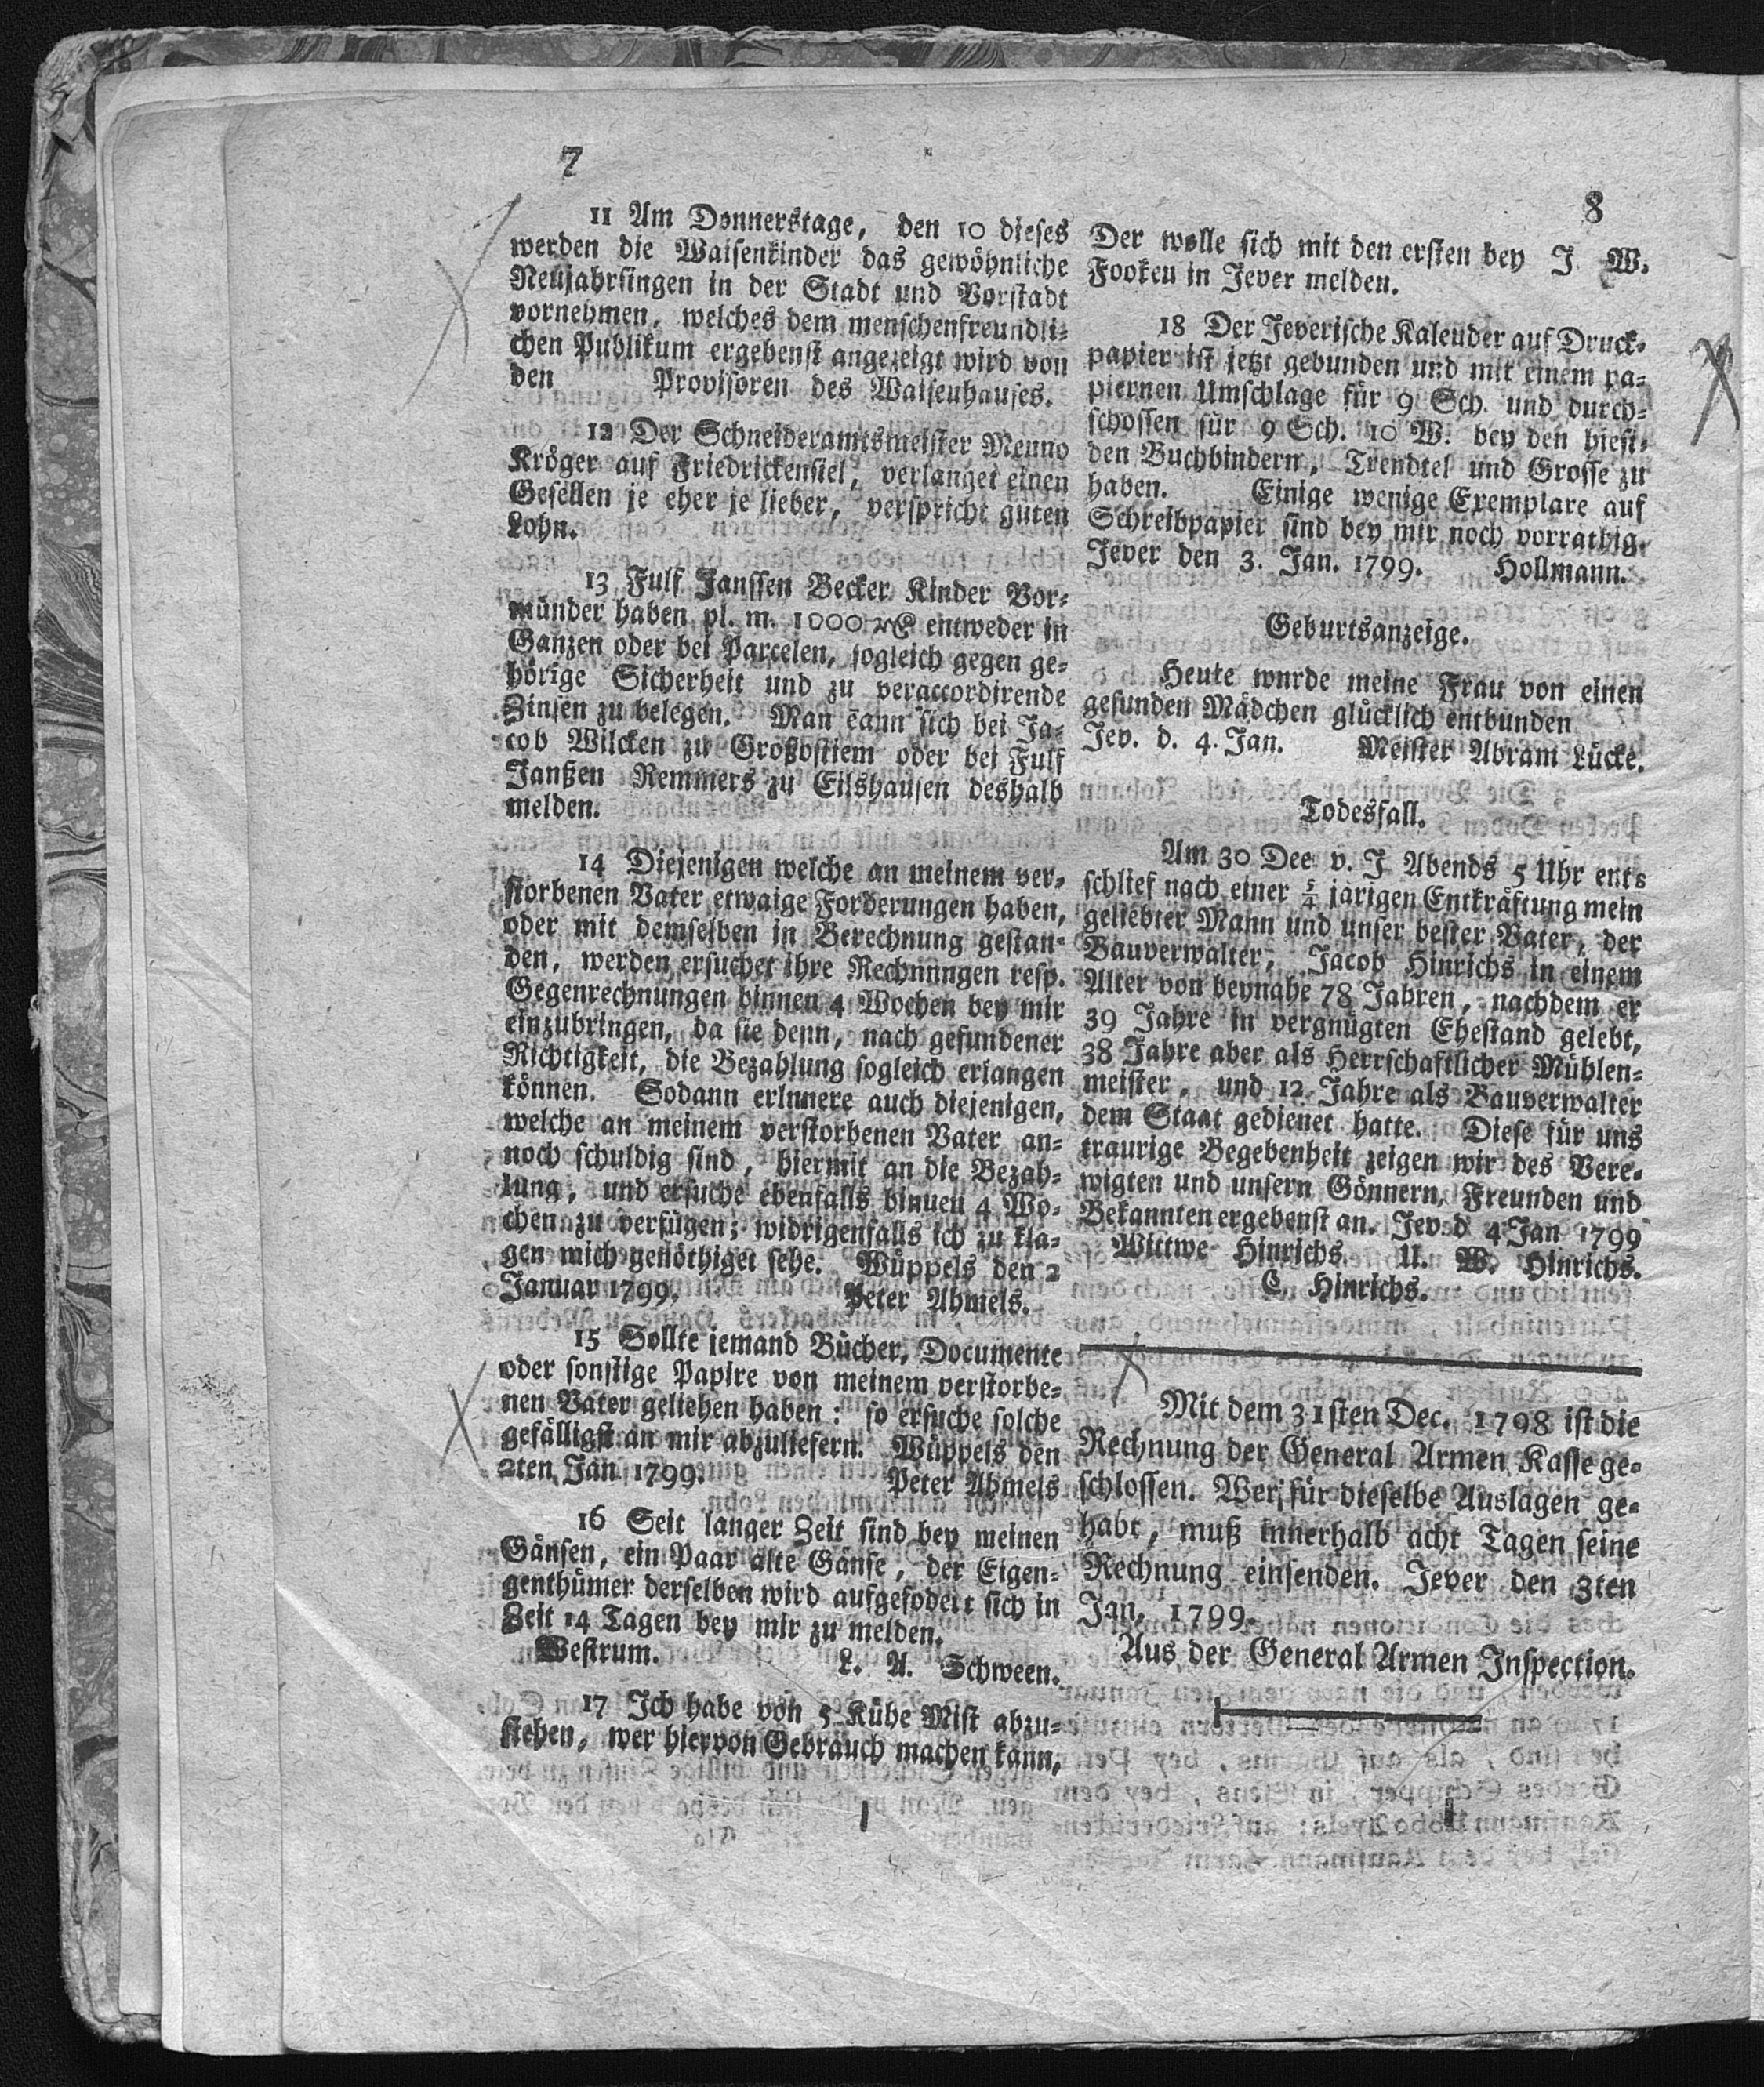 7
11 Am Donnerstage, den 10 dieses
werden die Waisenkinder das gewöhnliche
Neujahrsingen in der Stadt und Vorstadt
vornehmen, welches dem menschenfreundli-
chen Publikum ergebenst angezeigt wird von
den Provisoren des Waisenhauses.
12 Der Schneideramtsmeister Menno
Kröger auf Friedrickensiel, verlanget einen
Gesellen je eher je lieber, verspricht guten
Lohn.
13 Fulf Janssen Becker Kinder Vor-
münder haben pl. m. 1000 rC entweder in
Ganzen oder bei Parcelen, sogleich gegen ge-
hörige Sicherheit und zu veraccordirende
Zinsen zu belegen. Man cann sich bei Ja-
cob Wilcken zu Großostiem oder bei Fulf
Janßen Remmers zu Eilshausen deshalb
melden.
14 Diejenigen welche an meinem ver-
storbenen Vater etwaige Forderungen haben,
oder mit demselben in Berechnung gestan-
den, werden ersuchet ihre Rechnungen resp.
Gegenrechnungen binnen 4 Wochen bey mir
einzubringen, da sie denn, nach gefundener
Richtigkeit, die Bezahlung sogleich erlangen
können. Sodann erinnere auch diejenigen,
welche an meinem verstorbenen Vater an-
noch schuldig sind, hiermit an die Bezah-
lung, und ersuche ebenfalls binuen 4 Wo-
chen zu verfügen; widrigenfalls ich zu kla-
gen mich genöthiget sehe. Wüppels den 2
Januar 1799. Peter Ahmels.
15 Sollte jemand Bücher, Documente
oder sonstige Papire von meinem verstorbe-
nen Vater geliehen haben: so ersuche solche
gefälligst an mir abzuliefern. Wüppels den
2ten Jan 1799. Peter Ahmels
16 Seit langer Zeit sind bey meinen
Gänsen, ein Paar alte Gänse, der Eigen-
genthümer derselben wird aufgefodert sich in
Zeit 14 Tagen bey mir zu melden.
Westrum. L. A. Schween.
17 Ich habe von 5 Kühe Mist abzu-
stehen, wer hiervon Gebrauch machen kann,
8
Der wolle sich mit den ersten bey J. W.
Fooken in Jever melden.
18 Der Jeverische Kalender auf Druck-
papier ist jetzt gebunden und mit einem pa-
piernen Umschlage für 9 Sch. und durch-
schossen für 9 Sch. 10 W. bey den hiesi-
den Buchbindern, Trendtel und Grosse zu
haben. Einige wenige Exemplare auf
Schreibpapier sind bey mir noch vorrathig.
Jever den 3. Jan. 1799. Hollmann.
Geburtsanzeige.
Heute wurde meine Frau von einen
gesunden Mädchen glücklich entbunden
Jev. d. 4. Jan. Meister Abram Lücke.
Todesfall.
Am 30 Dec v. J Abends 5 Uhr ent-
schlief nach einer 5/4 järigen Entkräftung mein
geliebter Mann und unser bester Vater, der
Bauverwalter, Jacob Hinrichs in einem
Alter von beynahe 78 Jahren, nachdem er
39 Jahre in vergnügten Ehestand gelebt,
38 Jahre aber als Herrschaftlicher Mühlen-
meister, und 12 Jahre als Bauverwalter
dem Staat gedienet hatte. Diese für uns
traurige Begebenheit zeigen wir des Vere-
wigten und unsern Gönnern, Freunden und
Bekannten ergebenst an. Jev. d 4 Jan 1799
Wittwe Hinrichs. U. W. Hinrichs.
C. Hinrichs.
Mit dem 31sten Dec. 1798 ist die
Rechnung der General Armen Kasse ge-
schlossen. Wer für dieselbe Auslagen ge-
habt, muß innerhalb acht Tagen seine
Rechnung einsenden. Jever den 3ten
Jan. 1799.
Aus der General Armen Inspection.